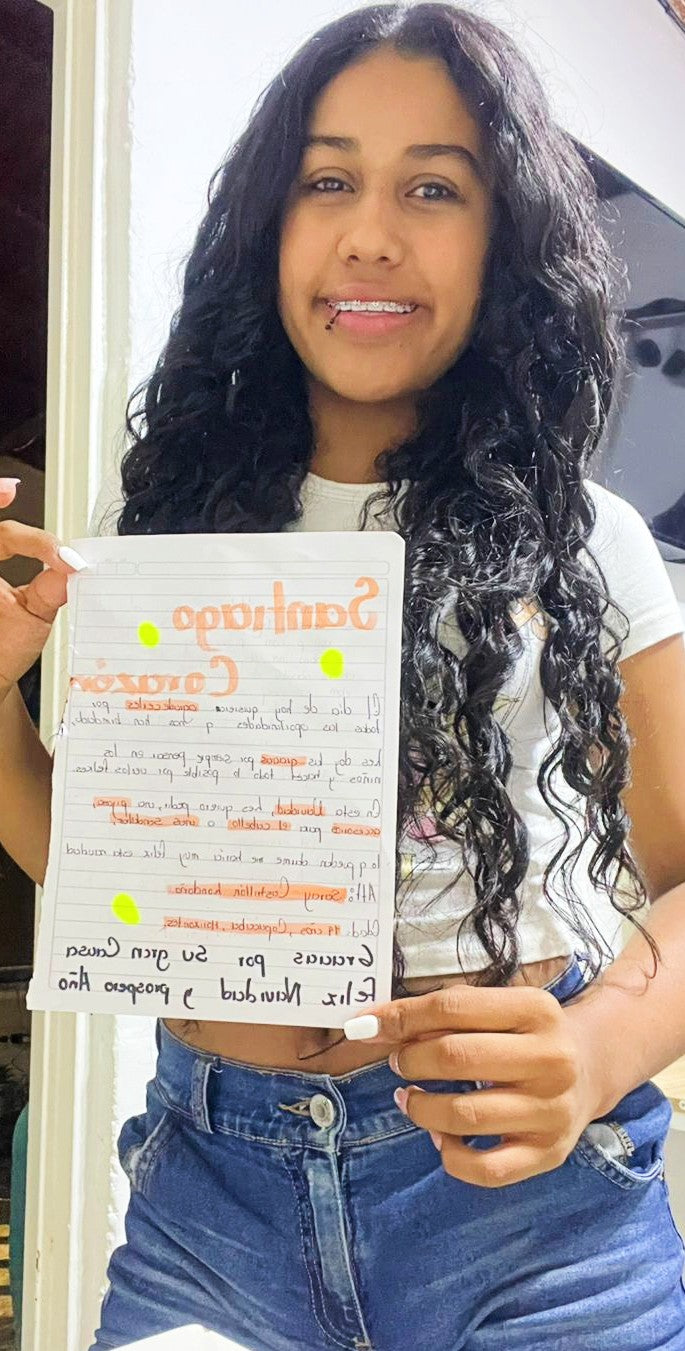 Santiago
Corazón
El dia de hoy quisiera agradecerles por
todas las oportunidades q nos han brindado,
les doy las gracias por siempre pensar en los
niños y hacer todo lo posible por verlos felices
En esta Navidad, les quiero pedir, una pijama,
accesorios para el cabello o unas sandalias,
lo q puedan darme me haría muy feliz esta navidad
Att: Saray Castrillón
Edad: años, Copacabana,
Gracias por su gran Causa
Feliz Navidad y prospero Año